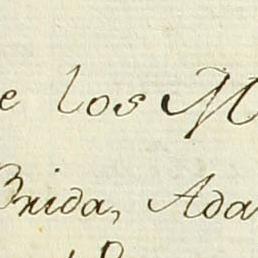 e los M
Brida, Ada